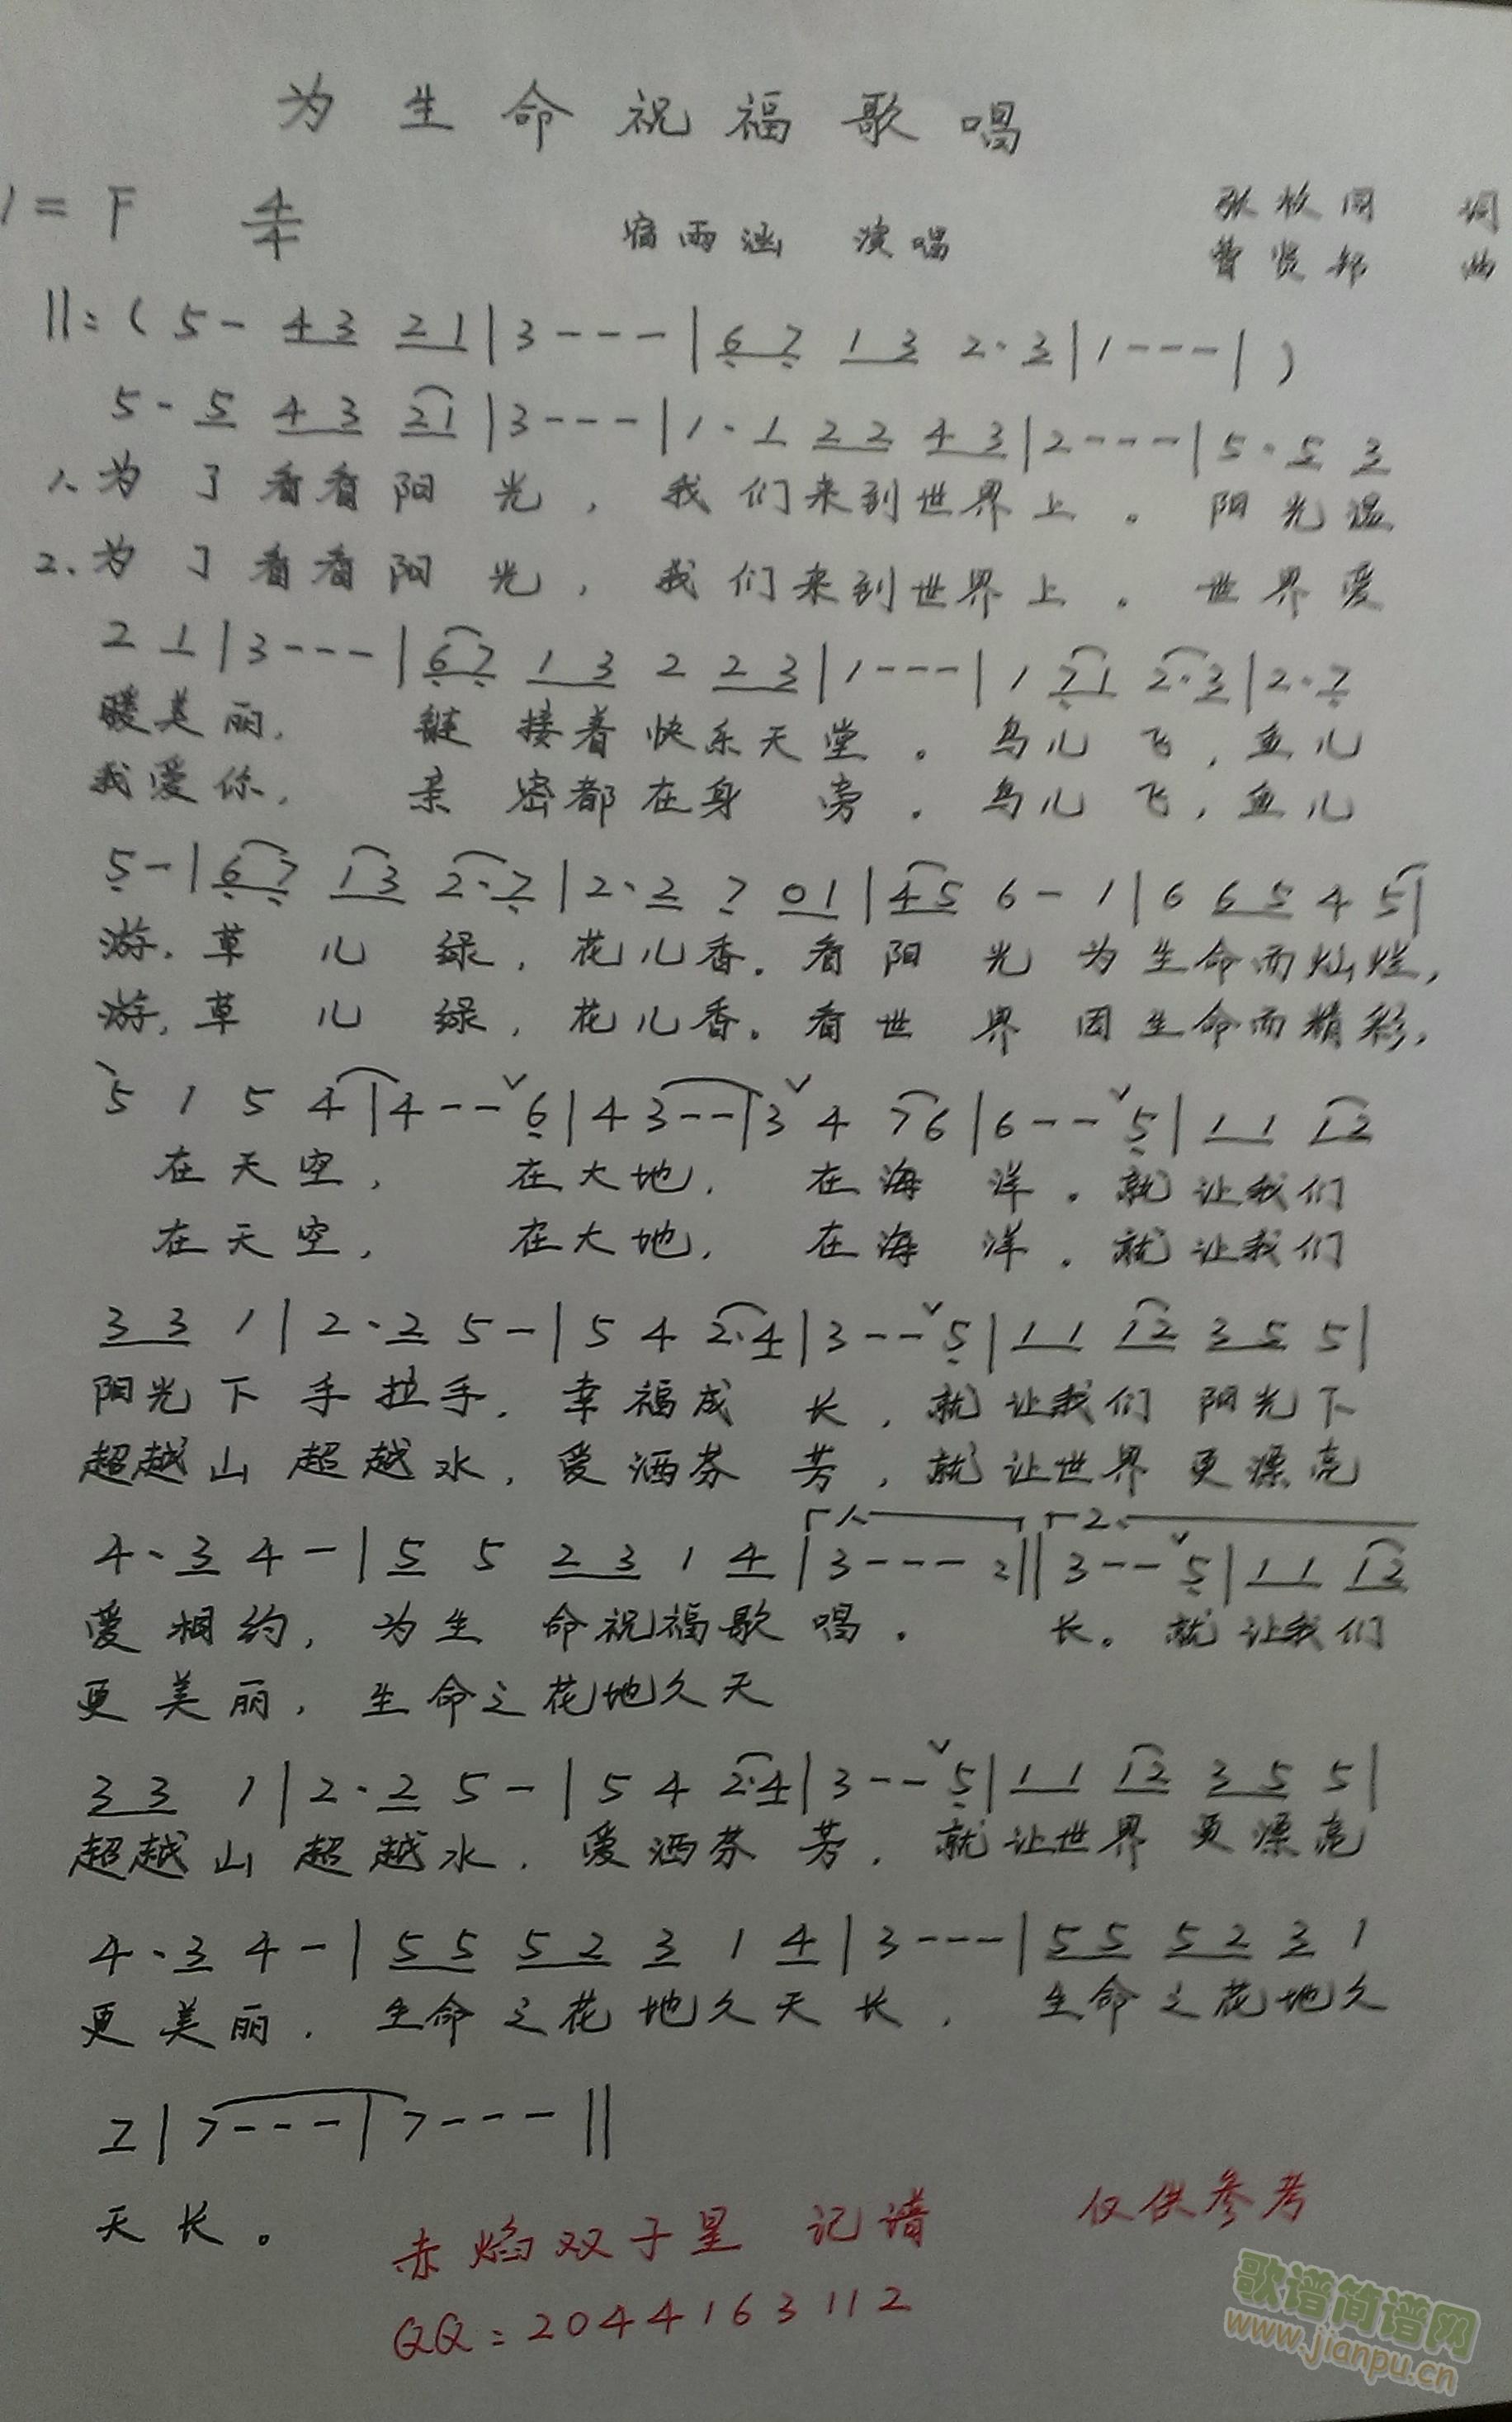 为生命祝福歌唱
1=F 4/4 宿雨涵 演唱 词
曲
||:( 5 - 4 3 2 1 | 3 - - - | 6 7 1 3 2 · 3 | 1 - - - | )
5 - 5 4 3 2 1 | 3 - - - | 1 · 1 2 2 4 3 | 2 - - - | 5 · 5 3
1、为了看看阳光，我们来到世界上。阳光温
2、为了看看阳光，我们来到世界上。世界爱
2 1 | 3 - - - | 6 7 1 3 2 2 3 | 1 - - - | 1 7 1 2 · 3 | 2 · 7
暖美丽，链接着快乐天堂。鸟儿飞，鱼儿
我爱你，亲密都在身旁。鸟儿飞，鱼儿
5 - | 6 7 1 3 2 · 7 | 2 · 2 7 0 1 | 4 5 6 - 1 | 6 6 5 4 5 |
游，草儿绿，花儿香。看阳光为生命而灿烂，
游，草儿绿，花儿香。看世界因生命而精彩，
5 1 5 4 | 4 - - ˇ 6 | 4 3 - - | 3 ˇ 4 7 6 | 6 - - ˇ 5 | 1 1 1 2
在天空，在大地，在海洋。就让我们
在天空，在大地，在海洋。就让我们
3 3 1 | 2 · 2 5 - | 5 4 2 · 4 | 3 - - ˇ 5 | 1 1 1 2 3 5 5 |
阳光下手拉手，幸福成长，就让我们阳光下
超越山超越水，爱洒芬芳，就让世界更漂亮
1、 2、
4 · 3 4 - | 5 5 2 3 1 4 | 3 - - - :|| 3 - - ˇ 5 | 1 1 1 2
爱相约，为生命祝福歌唱。长。就让我们
更美丽，生命之花地久天
3 3 1 | 2 · 2 5 - | 5 4 2 · 4 | 3 - - ˇ 5 | 1 1 1 2 3 5 5 |
超越山超越水，爱洒芬芳，就让世界更漂亮
4 · 3 4 - | 5 5 5 2 3 1 4 | 3 - - - | 5 5 5 2 3 1
更美丽，生命之花地久天长，生命之花地久
2 | 7 - - - | 7 - - - ||
天长。
赤焰双子星 记谱 仅供参考
QQ：2044163112
歌谱简谱网
www.jianpu.cn